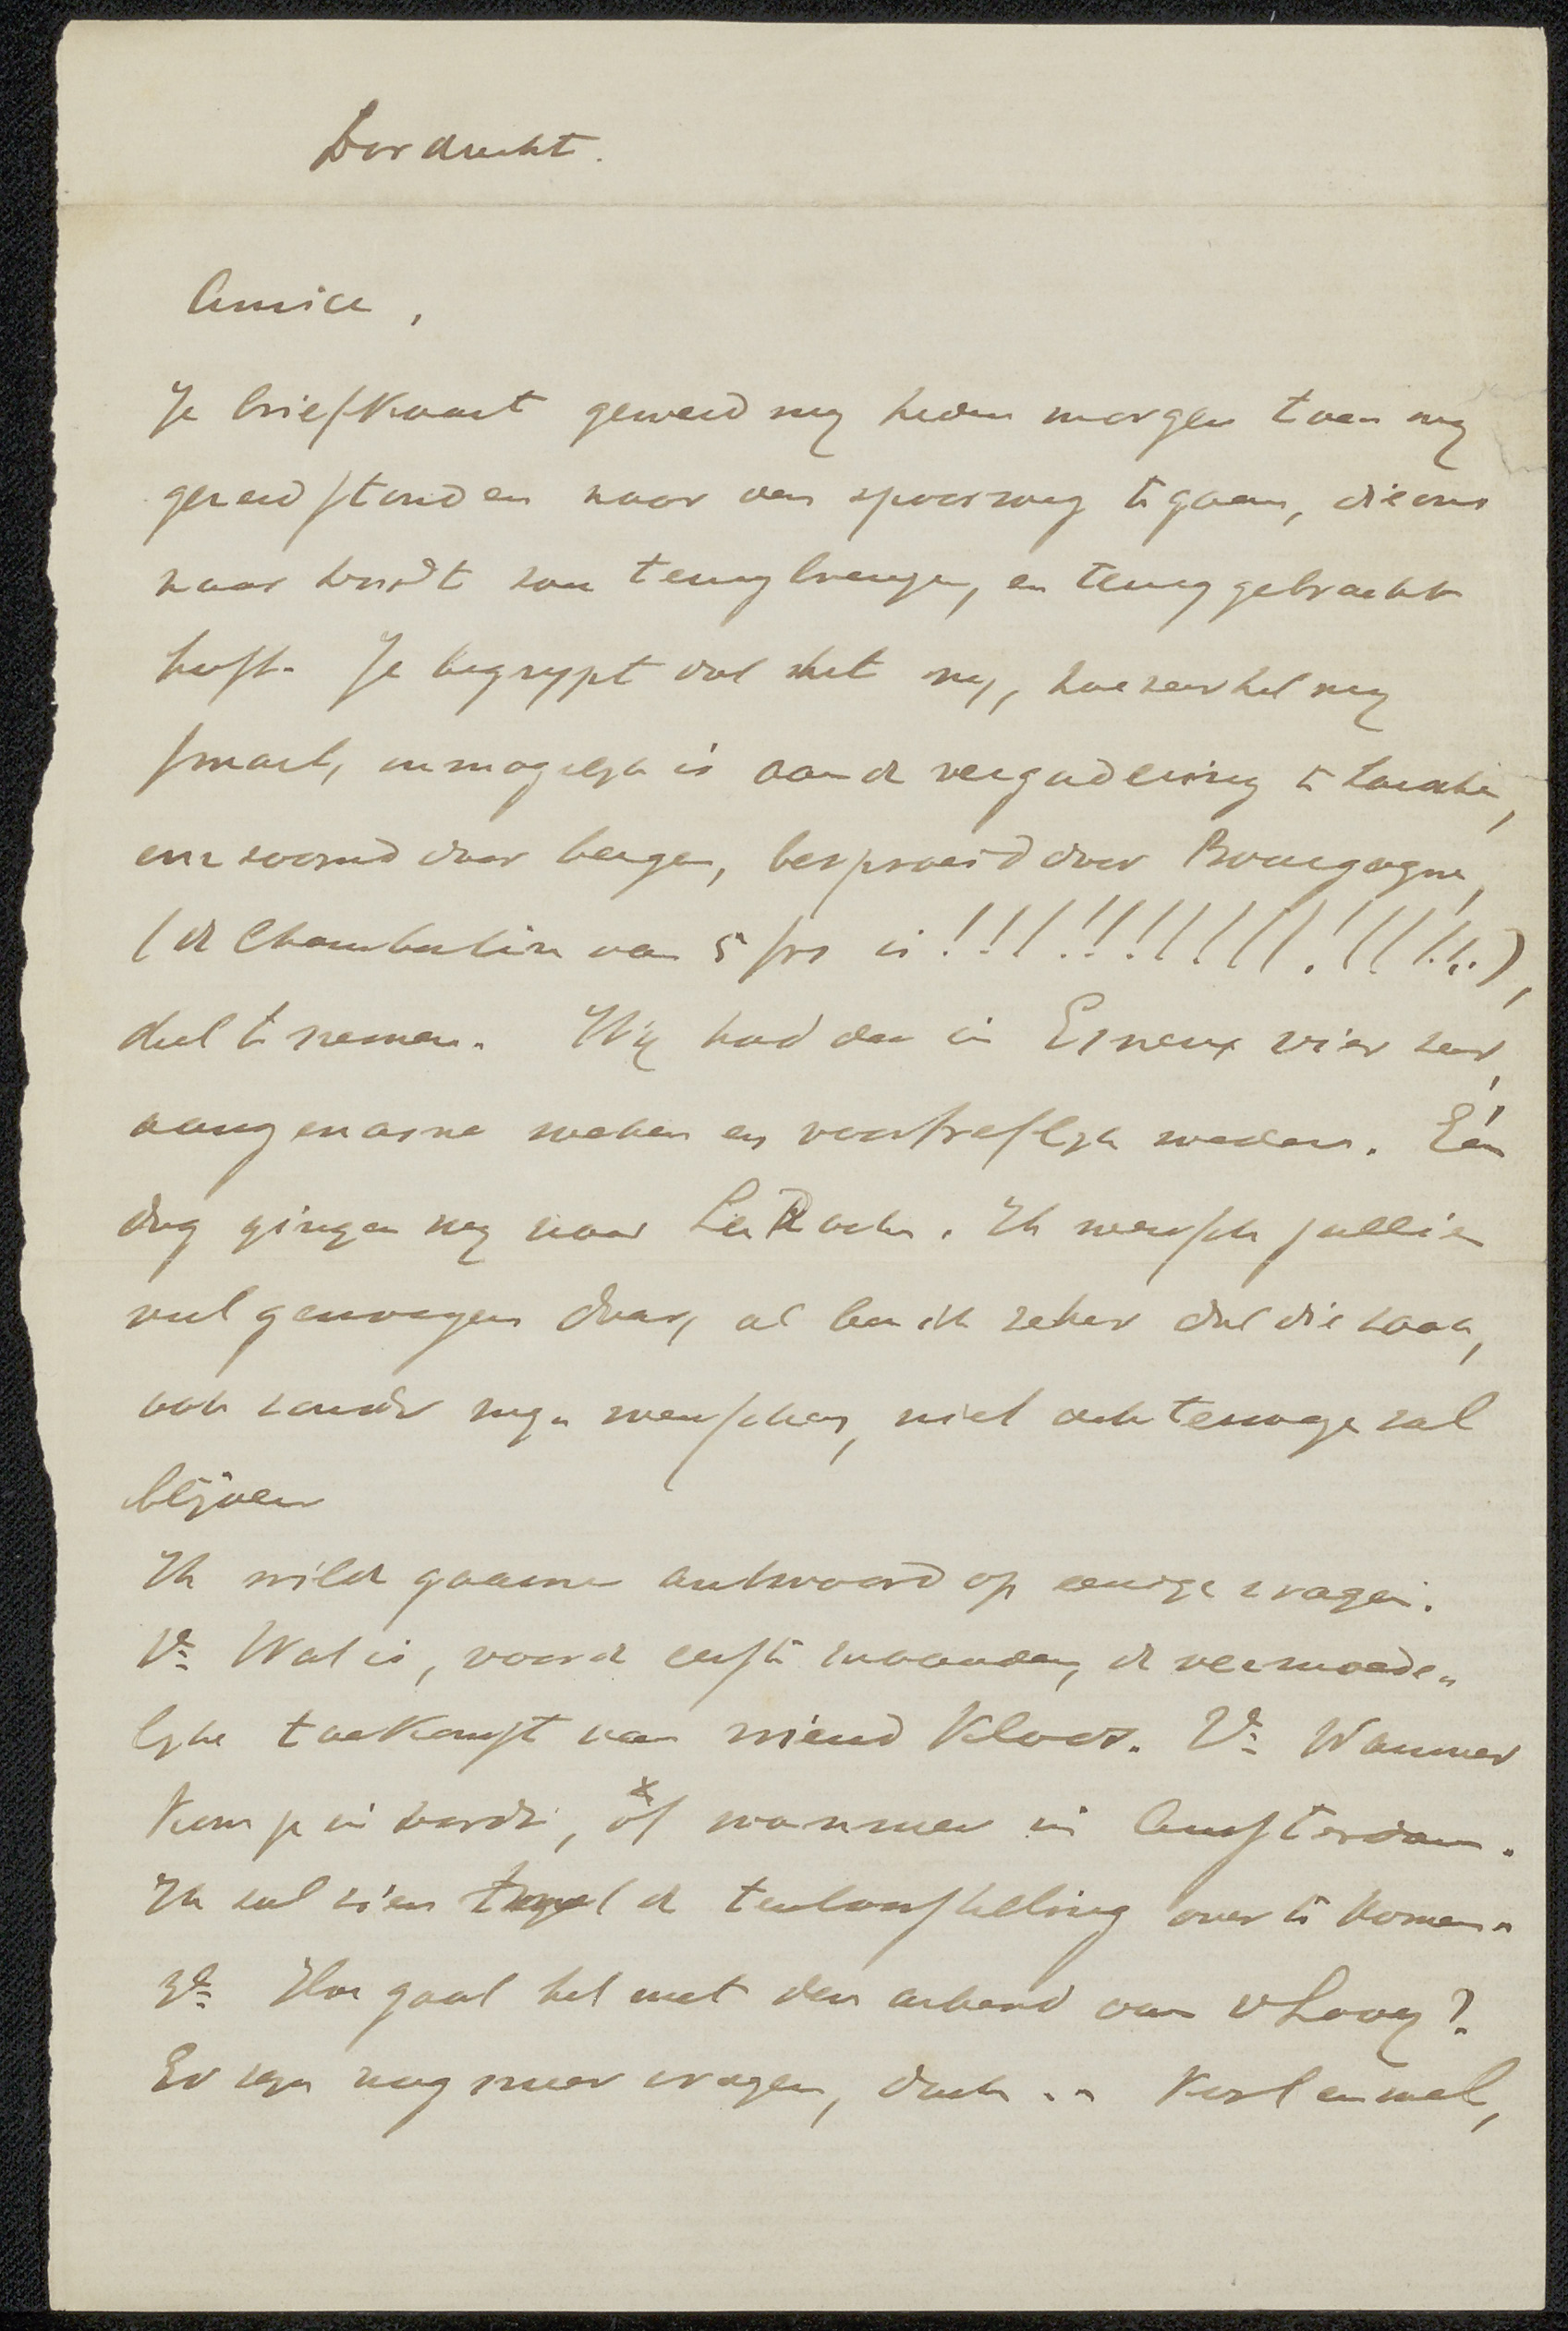 Dordrecht.
Amice,
Je briefkaart gewerd my heden morgen toen wy
gereed stonden naar den spoorweg te gaan, die ons
naar Dordt zou terugbrengen, en teruggebracht
heeft. Je begrypt dat het my, hoezeer het my
smart, onmogelyk is aan de vergadering te Laroche,
omzoomd door bergen, besproeid door Bourgogne,
(de Chambertin van 5 frs is !!!!!!!!!!!!!!!!!!),
deel te nemen. Wij hadden in Esneux vier zeer,
aangename weken en voortreflyk weder. Één
dag gingen wy naar La Roche. Ik wensch jullie
veel genoegen daar, al ben ik zeker dat die zaak,
ook zonder myn wenschen, niet achterwege zal
blijven
Ik wilde gaarne antwoord op eenige vragen.
1e. Wat is, voor de eerste maanden, de vermoede-
lyke toekomst van vriend Kloos. 2e. Wanneer
kom je in Dordt, òf wanneer in Amsterdam.
Ik zal zien de tentoonstelling over te komen.
3e. Hoe gaat het met den arbeid van v Looy?
Er zyn nog meer vragen, doch .. kort en wel,